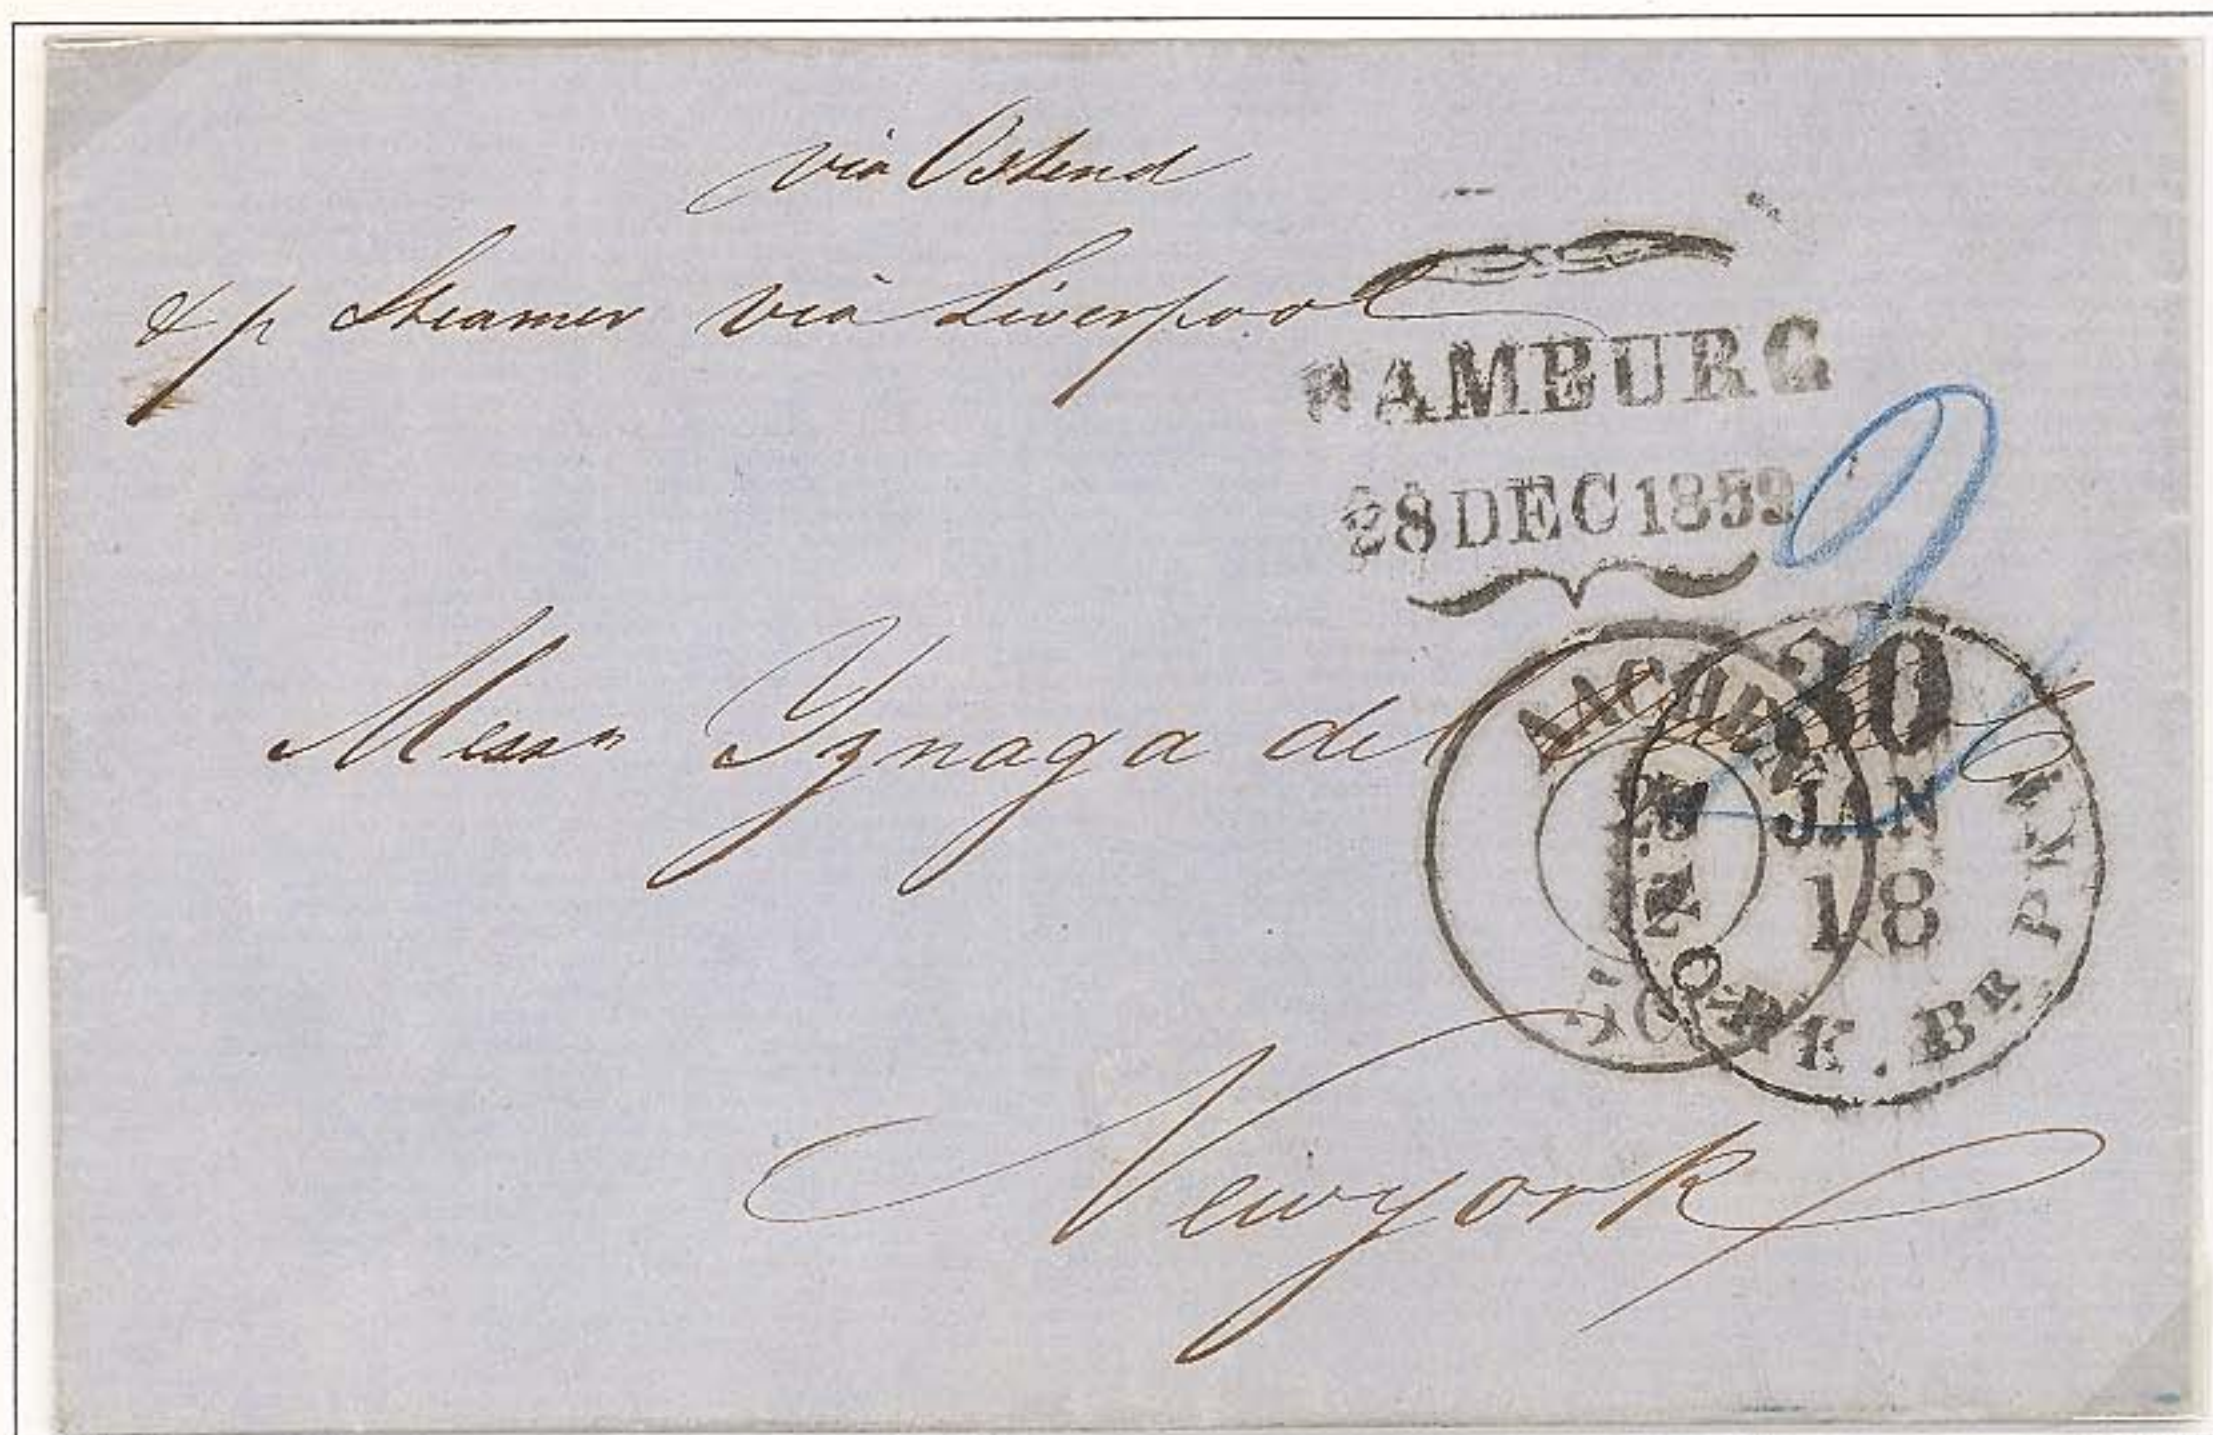 via Ostend
& p Steamer via Liverpool
HAMBURG
28 DEC 1859
Messrs Yznaga del
AACHEN
30
JAN
18
N. YORK. BR PKT
Newyork